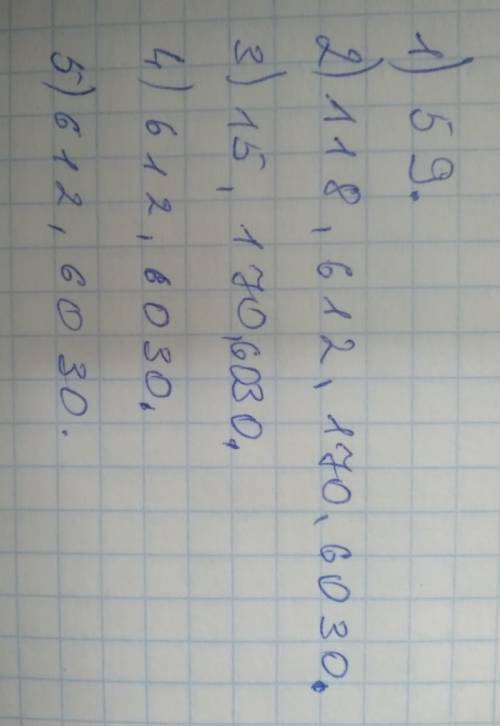 1) 59.
2) 118, 612, 170, 6030.
3) 15, 170,6030,
4) 612, 6030,
5) 612, 6030.